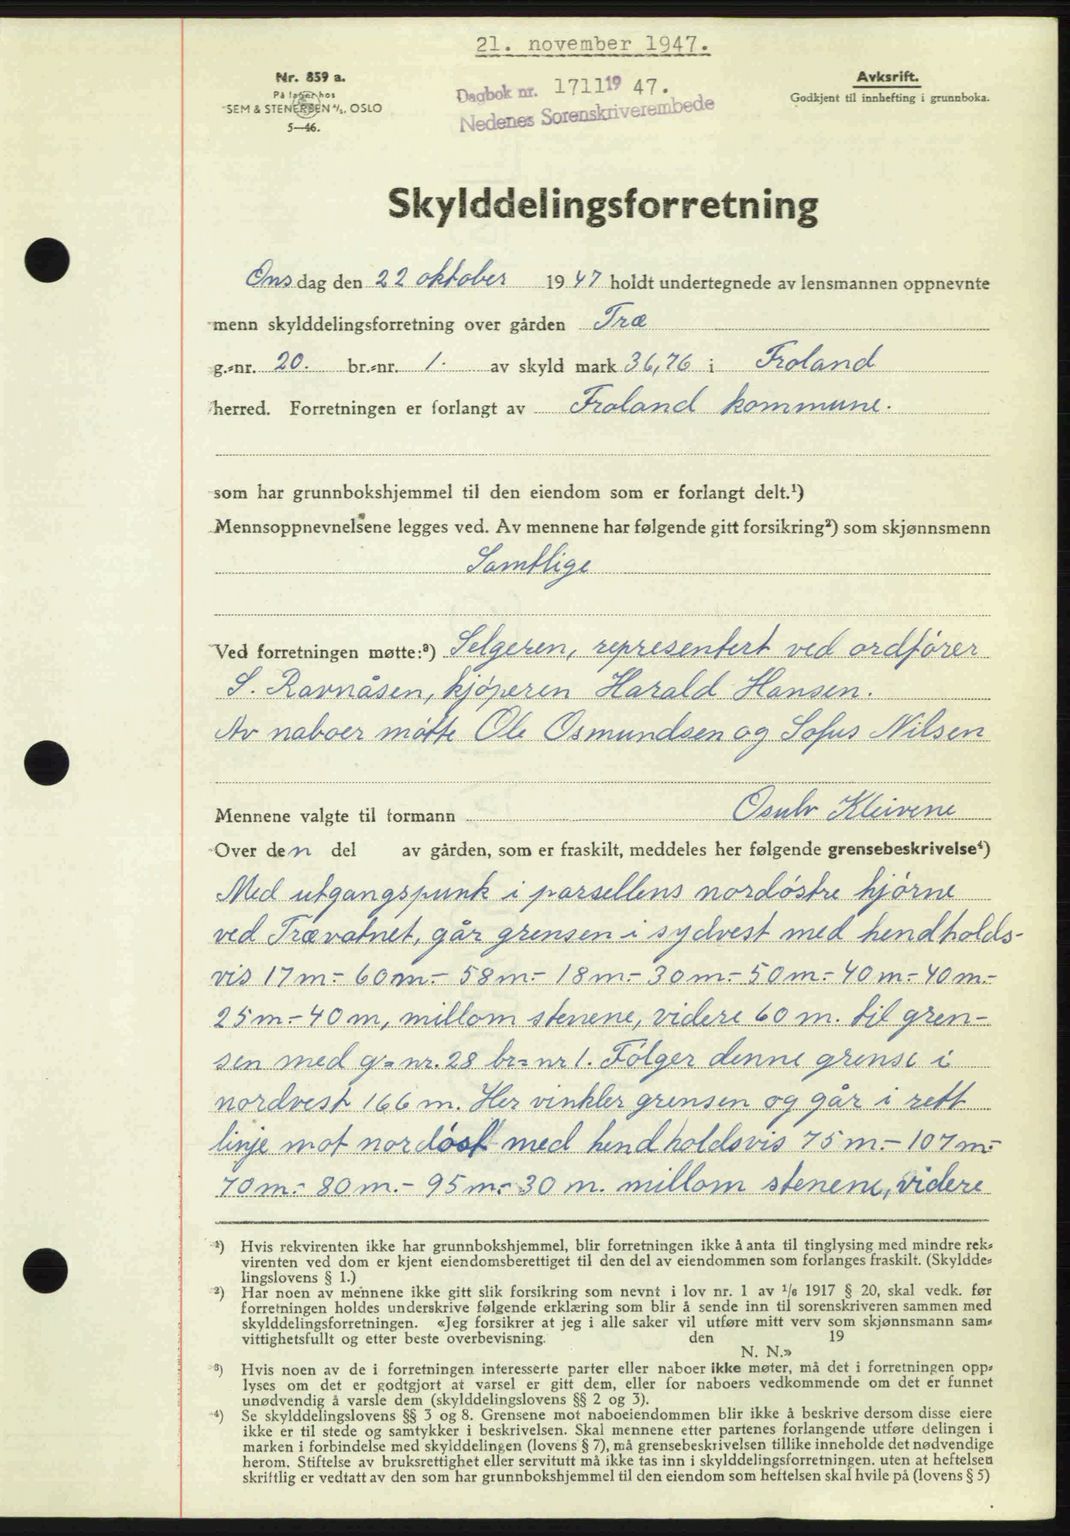 21. november 1947.
Nr. 859 a.
På lager hos
SEM & STENERSEN A/S, OSLO
5—46.
Dagbok nr. 1711 19 47.
Nedenes Sorenskriverembede
Avskrift.
Godkjent til innhefting i grunnboka.
Skylddelingsforretning
Onsdag den 22 oktober 1947 holdt undertegnede av lensmannen oppnevnte
menn skylddelingsforretning over gården Træ
g.-nr. 20. br.-nr. 1. av skyld mark 36,76 i Froland
herred. Forretningen er forlangt av Froland kommune.
som har grunnbokshjemmel til den eiendom som er forlangt delt.¹)
Mennsoppnevnelsene legges ved. Av mennene har følgende gitt forsikring²) som skjønnsmenn
Samtlige
Ved forretningen møtte:³) Selgeren, representert ved ordfører
S. Ravnåsen, kjøperen Harald Hansen.
Av naboer møtte Ole Osmundsen og Sofus Nilsen
Mennene valgte til formann Osulv Kleivene
Over den del av gården, som er fraskilt, meddeles her følgende grensebeskrivelse⁴)
Med utgangspunk i parsellens nordøstre hjørne
ved Trævatnet, går grensen i sydvest med hendholds-
vis 17 m - 60 m - 58 m - 18 m - 30 m - 50 m - 40 m - 40 m -
25 m - 40 m, millom stenene, videre 60 m. til gren-
sen med g=nr. 28 br=nr 1. Følger denne grense i
nordvest 166 m. Her vinkler grensen og går i rett
linje mot nordøst med hendholdsvis 75 m - 107 m -
70 m - 80 m. - 95 m - 30 m. millom stenene, videre
¹) Hvis rekvirenten ikke har grunnbokshjemmel, blir forretningen ikke å anta til tinglysing med mindre rek-
virenten ved dom er kjent eiendomsberettiget til den del av eiendommen som forlanges fraskilt. (Skyldde-
lingslovens § 1.)
²) Har noen av mennene ikke gitt slik forsikring som nevnt i lov nr. 1 av 1/6 1917 § 20, skal vedk. før
forretningen holdes underskrive følgende erklæring som blir å sende inn til sorenskriveren sammen med
skylddelingsforretningen. «Jeg forsikrer at jeg i alle saker vil utføre mitt verv som skjønnsmann sam-
vittighetsfullt og etter beste overbevisning. den 19
N. N.»
³) Hvis noen av de i forretningen interesserte parter eller naboer ikke møter, må det i forretningen opp-
lyses om det er godtgjort at varsel er gitt dem, eller for naboers vedkommende om det er funnet
unødvendig å varsle dem (skylddelingslovens §§ 2 og 3).
⁴) Se skylddelingslovens §§ 3 og 8. Grensene mot naboeiendommen blir ikke å beskrive dersom disse eiere
ikke er til stede og samtykker i beskrivelsen. Skal mennene etter partenes forlangende utføre delingen i
marken i forbindelse med skylddelingen (lovens § 7), må grensebeskrivelsen tillike inneholde det nødvendige
herom. Stiftelse av bruksrettighet eller servitutt må ikke tas inn i skylddelingsforretningen, uten at heftelsen
skriftlig er vedtatt av den som har grunnbokshjemmel til den eiendom som heftelsen skal hvile på (lovens § 5)